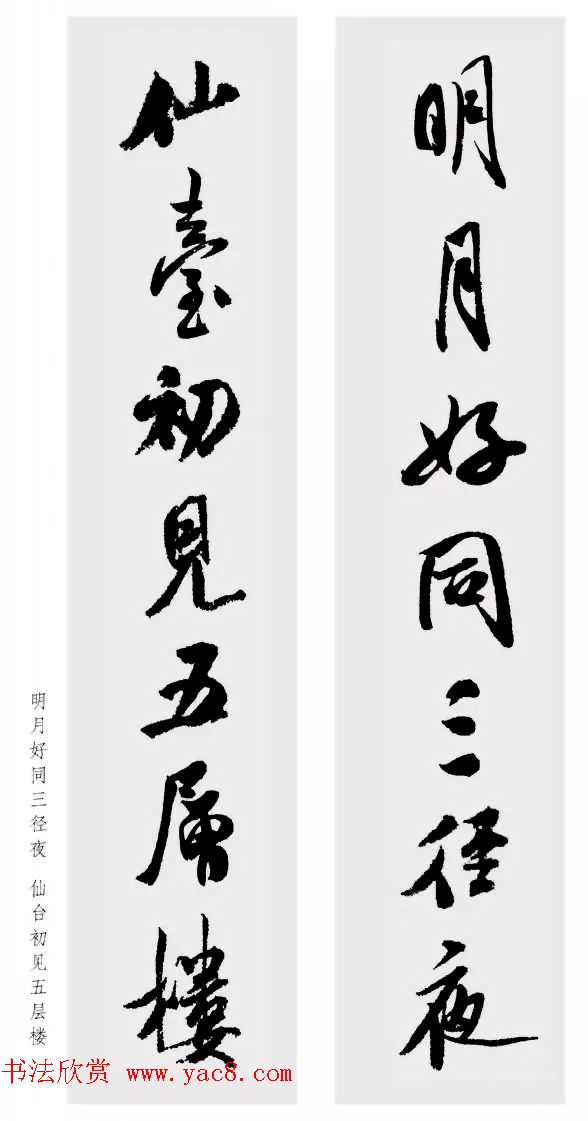 明月好同三径夜
仙臺初見五層樓
明月好同三径夜 仙台初见五层楼
书法欣赏 www.yac8.com